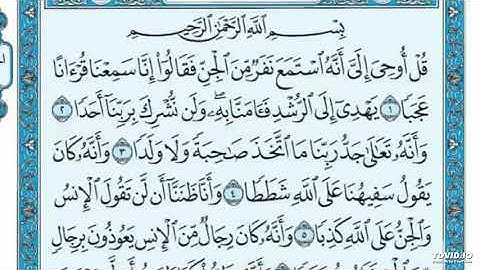 بِسْمِ اللَّهِ الرَّحْمَٰنِ الرَّحِيمِ
قُلْ أُوحِيَ إِلَيَّ أَنَّهُ اسْتَمَعَ نَفَرٌ مِّنَ الْجِنِّ فَقَالُوا إِنَّا سَمِعْنَا قُرْءَانًا
عَجَبًا ١ يَهْدِي إِلَى الرُّشْدِ فَـَٔامَنَّا بِهِۦ وَلَن نُّشْرِكَ بِرَبِّنَا أَحَدًا ٢
وَأَنَّهُ تَعَالَىٰ جَدُّ رَبِّنَا مَا اتَّخَذَ صَاحِبَةً وَلَا وَلَدًا ٣ وَأَنَّهُ كَانَ
يَقُولُ سَفِيهُنَا عَلَى اللَّهِ شَطَطًا ٤ وَأَنَّا ظَنَنَّا أَن لَّن تَقُولَ الْإِنسُ
وَالْجِنُّ عَلَى اللَّهِ كَذِبًا ٥ وَأَنَّهُ كَانَ رِجَالٌ مِّنَ الْإِنسِ يَعُوذُونَ بِرِجَالٍ
TOVID.IO